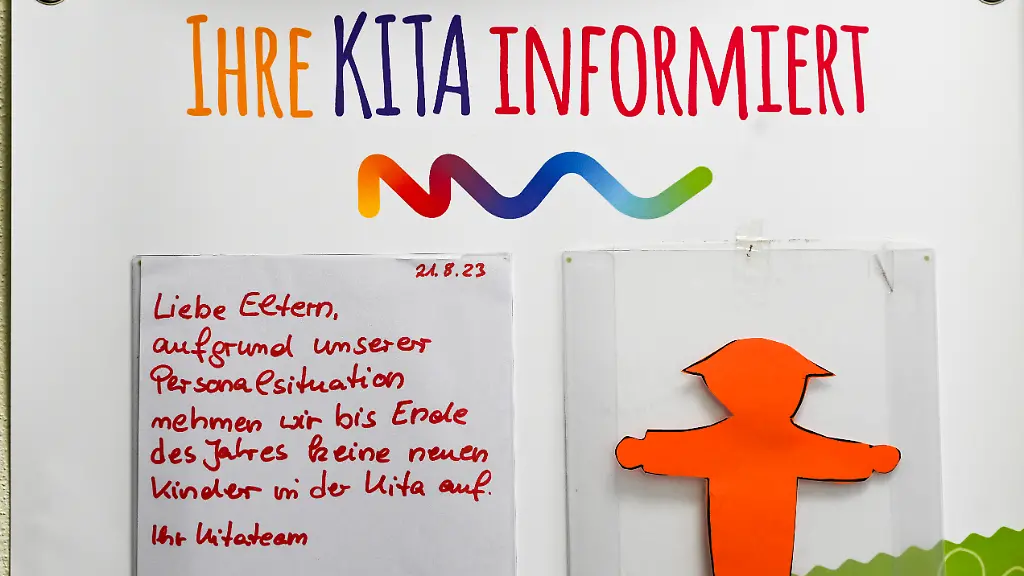 IHRE KITA INFORMIERT
21.8.23
Liebe Eltern,
aufgrund unserer
Personalsituation
nehmen wir bis Ende
des Jahres keine neuen
Kinder in der Kita auf.
Ihr Kitateam